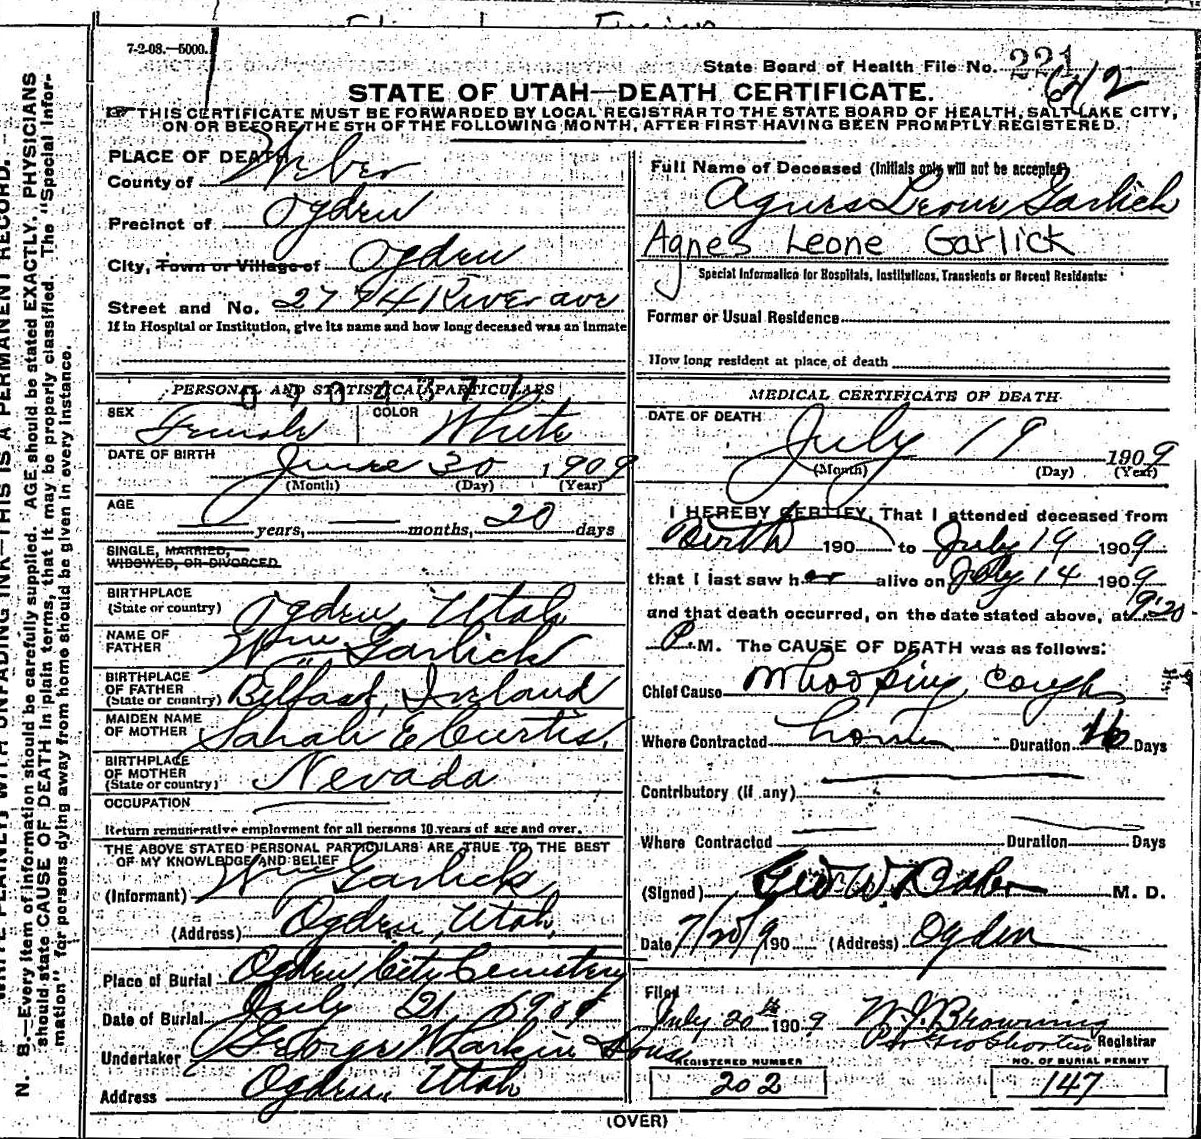 7-2-08.—5000.
State Board of Health File No. 221
612
STATE OF UTAH—DEATH CERTIFICATE.
THIS CERTIFICATE MUST BE FORWARDED BY LOCAL REGISTRAR TO THE STATE BOARD OF HEALTH, SALT LAKE CITY,
ON OR BEFORE THE 5TH OF THE FOLLOWING MONTH, AFTER FIRST HAVING BEEN PROMPTLY REGISTERED.
PLACE OF DEATH
County of Weber
Precinct of Ogden
City, Town or Village of Ogden
Street and No. 2794 River ave
If in Hospital or Institution, give its name and how long deceased was an inmate
PERSONAL AND STATISTICAL PARTICULARS
SEX Female COLOR White
DATE OF BIRTH June 30 1909
(Month) (Day) (Year)
AGE
years, months, 20 days
SINGLE, MARRIED,
WIDOWED, OR DIVORCED
BIRTHPLACE
(State or country) Ogden, Utah
NAME OF
FATHER Wm Garlick
BIRTHPLACE
OF FATHER
(State or country) Belfast, Ireland
MAIDEN NAME
OF MOTHER Sarah E Curtis.
BIRTHPLACE
OF MOTHER
(State or country) Nevada
OCCUPATION
Return remunerative employment for all persons 10 years of age and over.
THE ABOVE STATED PERSONAL PARTICULARS ARE TRUE TO THE BEST
OF MY KNOWLEDGE AND BELIEF
(Informant) Wm Garlick
(Address) Ogden, Utah,
Place of Burial Ogden City Cemetery
Date of Burial July 21, 1909
Undertaker George W Larkin & Sons
Address Ogden, Utah
Full Name of Deceased (Initials only will not be accepted)
Agnes Leone Garlick
Agnes Leone Garlick
Special Information for Hospitals, Institutions, Transients or Recent Residents:
Former or Usual Residence
How long resident at place of death
MEDICAL CERTIFICATE OF DEATH
DATE OF DEATH
July 19 1909
(Month) (Day) (Year)
I HEREBY CERTIFY, That I attended deceased from
Birth 190 to July 19 1909
that I last saw her alive on July 14 1909
and that death occurred, on the date stated above, at 9:20
P.M. The CAUSE OF DEATH was as follows:
Chief Cause Whooping Cough
Where Contracted home Duration 16 Days
Contributory (If any)
Where Contracted Duration Days
(Signed) Geo. W. Baker M. D.
Date 7/20/9 190 (Address) Ogden
Filed
July 20th 1909 W. J. Browning
Per Geo Shorten Registrar
REGISTERED NUMBER
202
NO. OF BURIAL PERMIT
147
(OVER)
N. B.—Every item of information should be carefully supplied. AGE should be stated EXACTLY. PHYSICIANS
should state CAUSE OF DEATH in plain terms, that it may be properly classified. The "Special Infor-
mation" for persons dying away from home should be given in every instance.